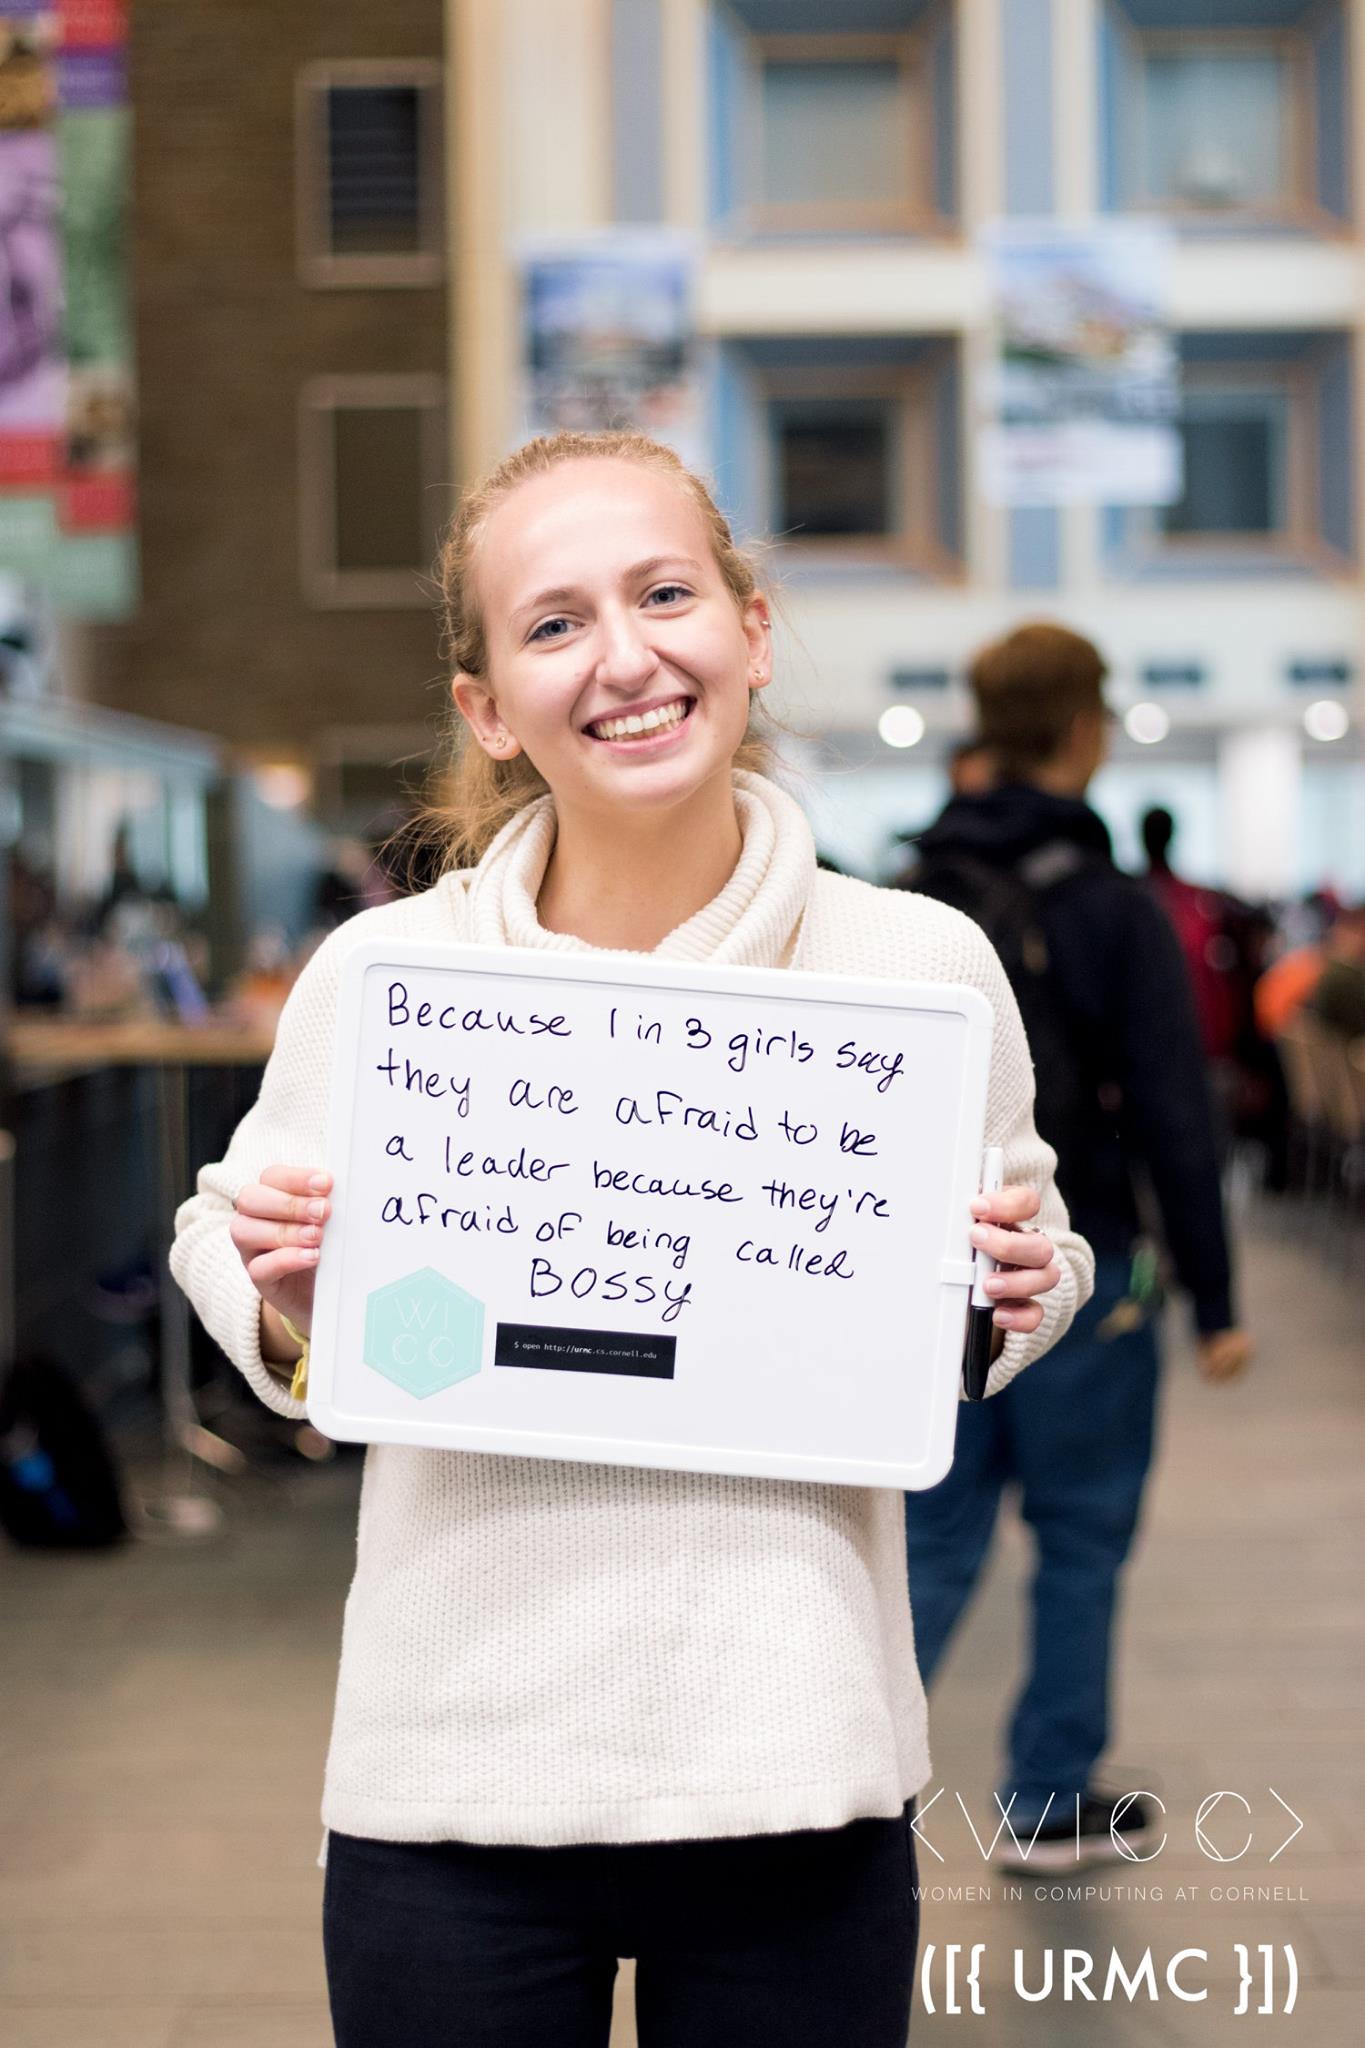 Because 1 in 3 girls say
they are afraid to be
a leader because they're
afraid of being called
BOSSY
WI
CC
$ open http://urmc.cs.cornell.edu
<WICC>
WOMEN IN COMPUTING AT CORNELL
([{ URMC }])